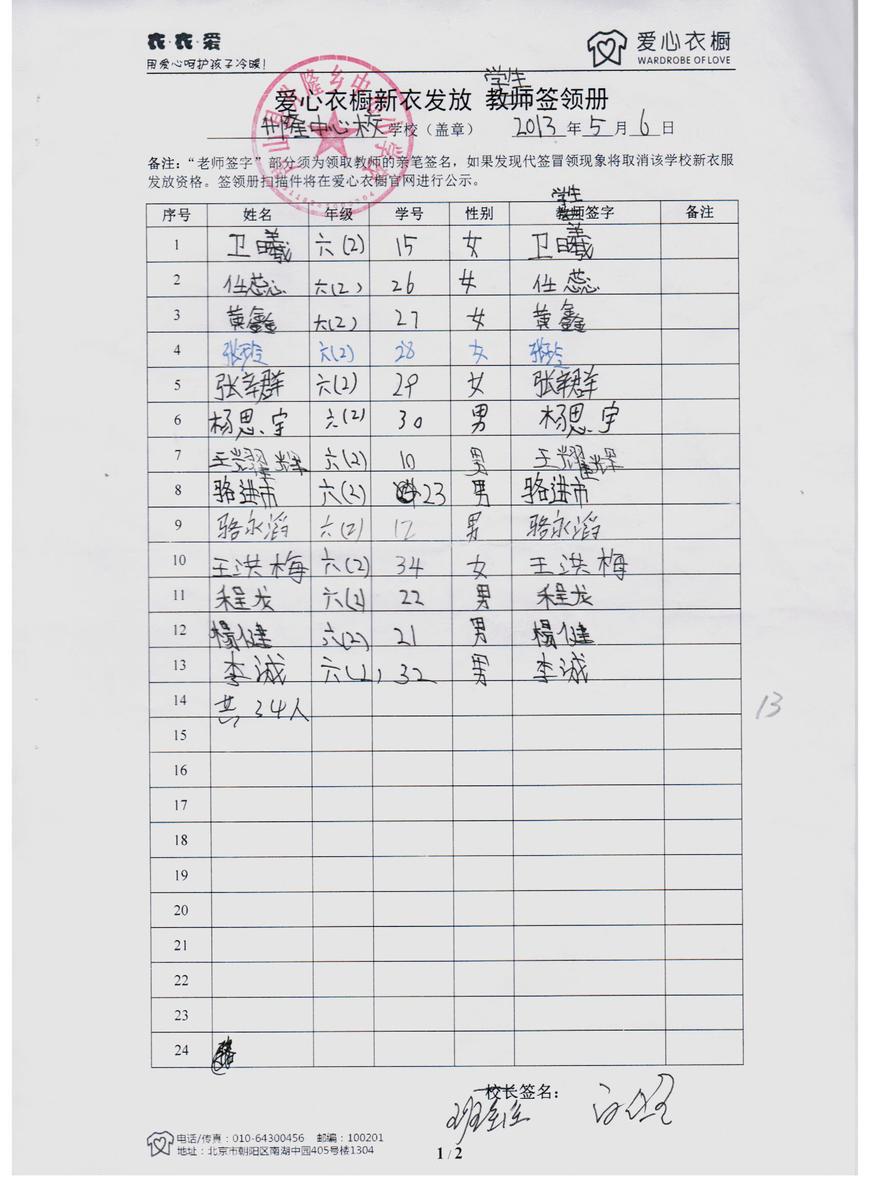 衣·衣·爱
用爱心呵护孩子冷暖!
爱心衣橱
WARDROBE OF LOVE
学生
爱心衣橱新衣发放 教师签领册
兴隆中心校 学校（盖章） 2013 年 5 月 6 日
备注：“老师签字”部分须为领取教师的亲笔签名，如果发现代签冒领现象将取消该学校新衣服
发放资格。签领册扫描件将在爱心衣橱官网进行公示。
学生
序号 姓名 年级 学号 性别 教师签字 备注
1 卫曦 六(2) 15 女 卫曦
2 任蕊 六(2) 26 女 任蕊
3 黄鑫 六(2) 27 女 黄鑫
4 张玲 六(2) 28 女 张玲
5 张辛群 六(2) 29 女 张辛群
6 杨思宇 六(2) 30 男 杨思宇
7 王耀辉 六(2) 10 男 王耀辉
8 骆进市 六(2) 23 男 骆进市
9 骆永滔 六(2) 12 男 骆永滔
10 王洪梅 六(2) 34 女 王洪梅
11 程龙 六(2) 22 男 程龙
12 楊健 六(2) 21 男 楊健
13 李诚 六(2) 32 男 李诚
14 共34人
13
15
16
17
18
19
20
21
22
23
24
校长签名：
班主任
电话/传真：010-64300456 邮编：100201
地址：北京市朝阳区南湖中园405号楼1304
1 / 2